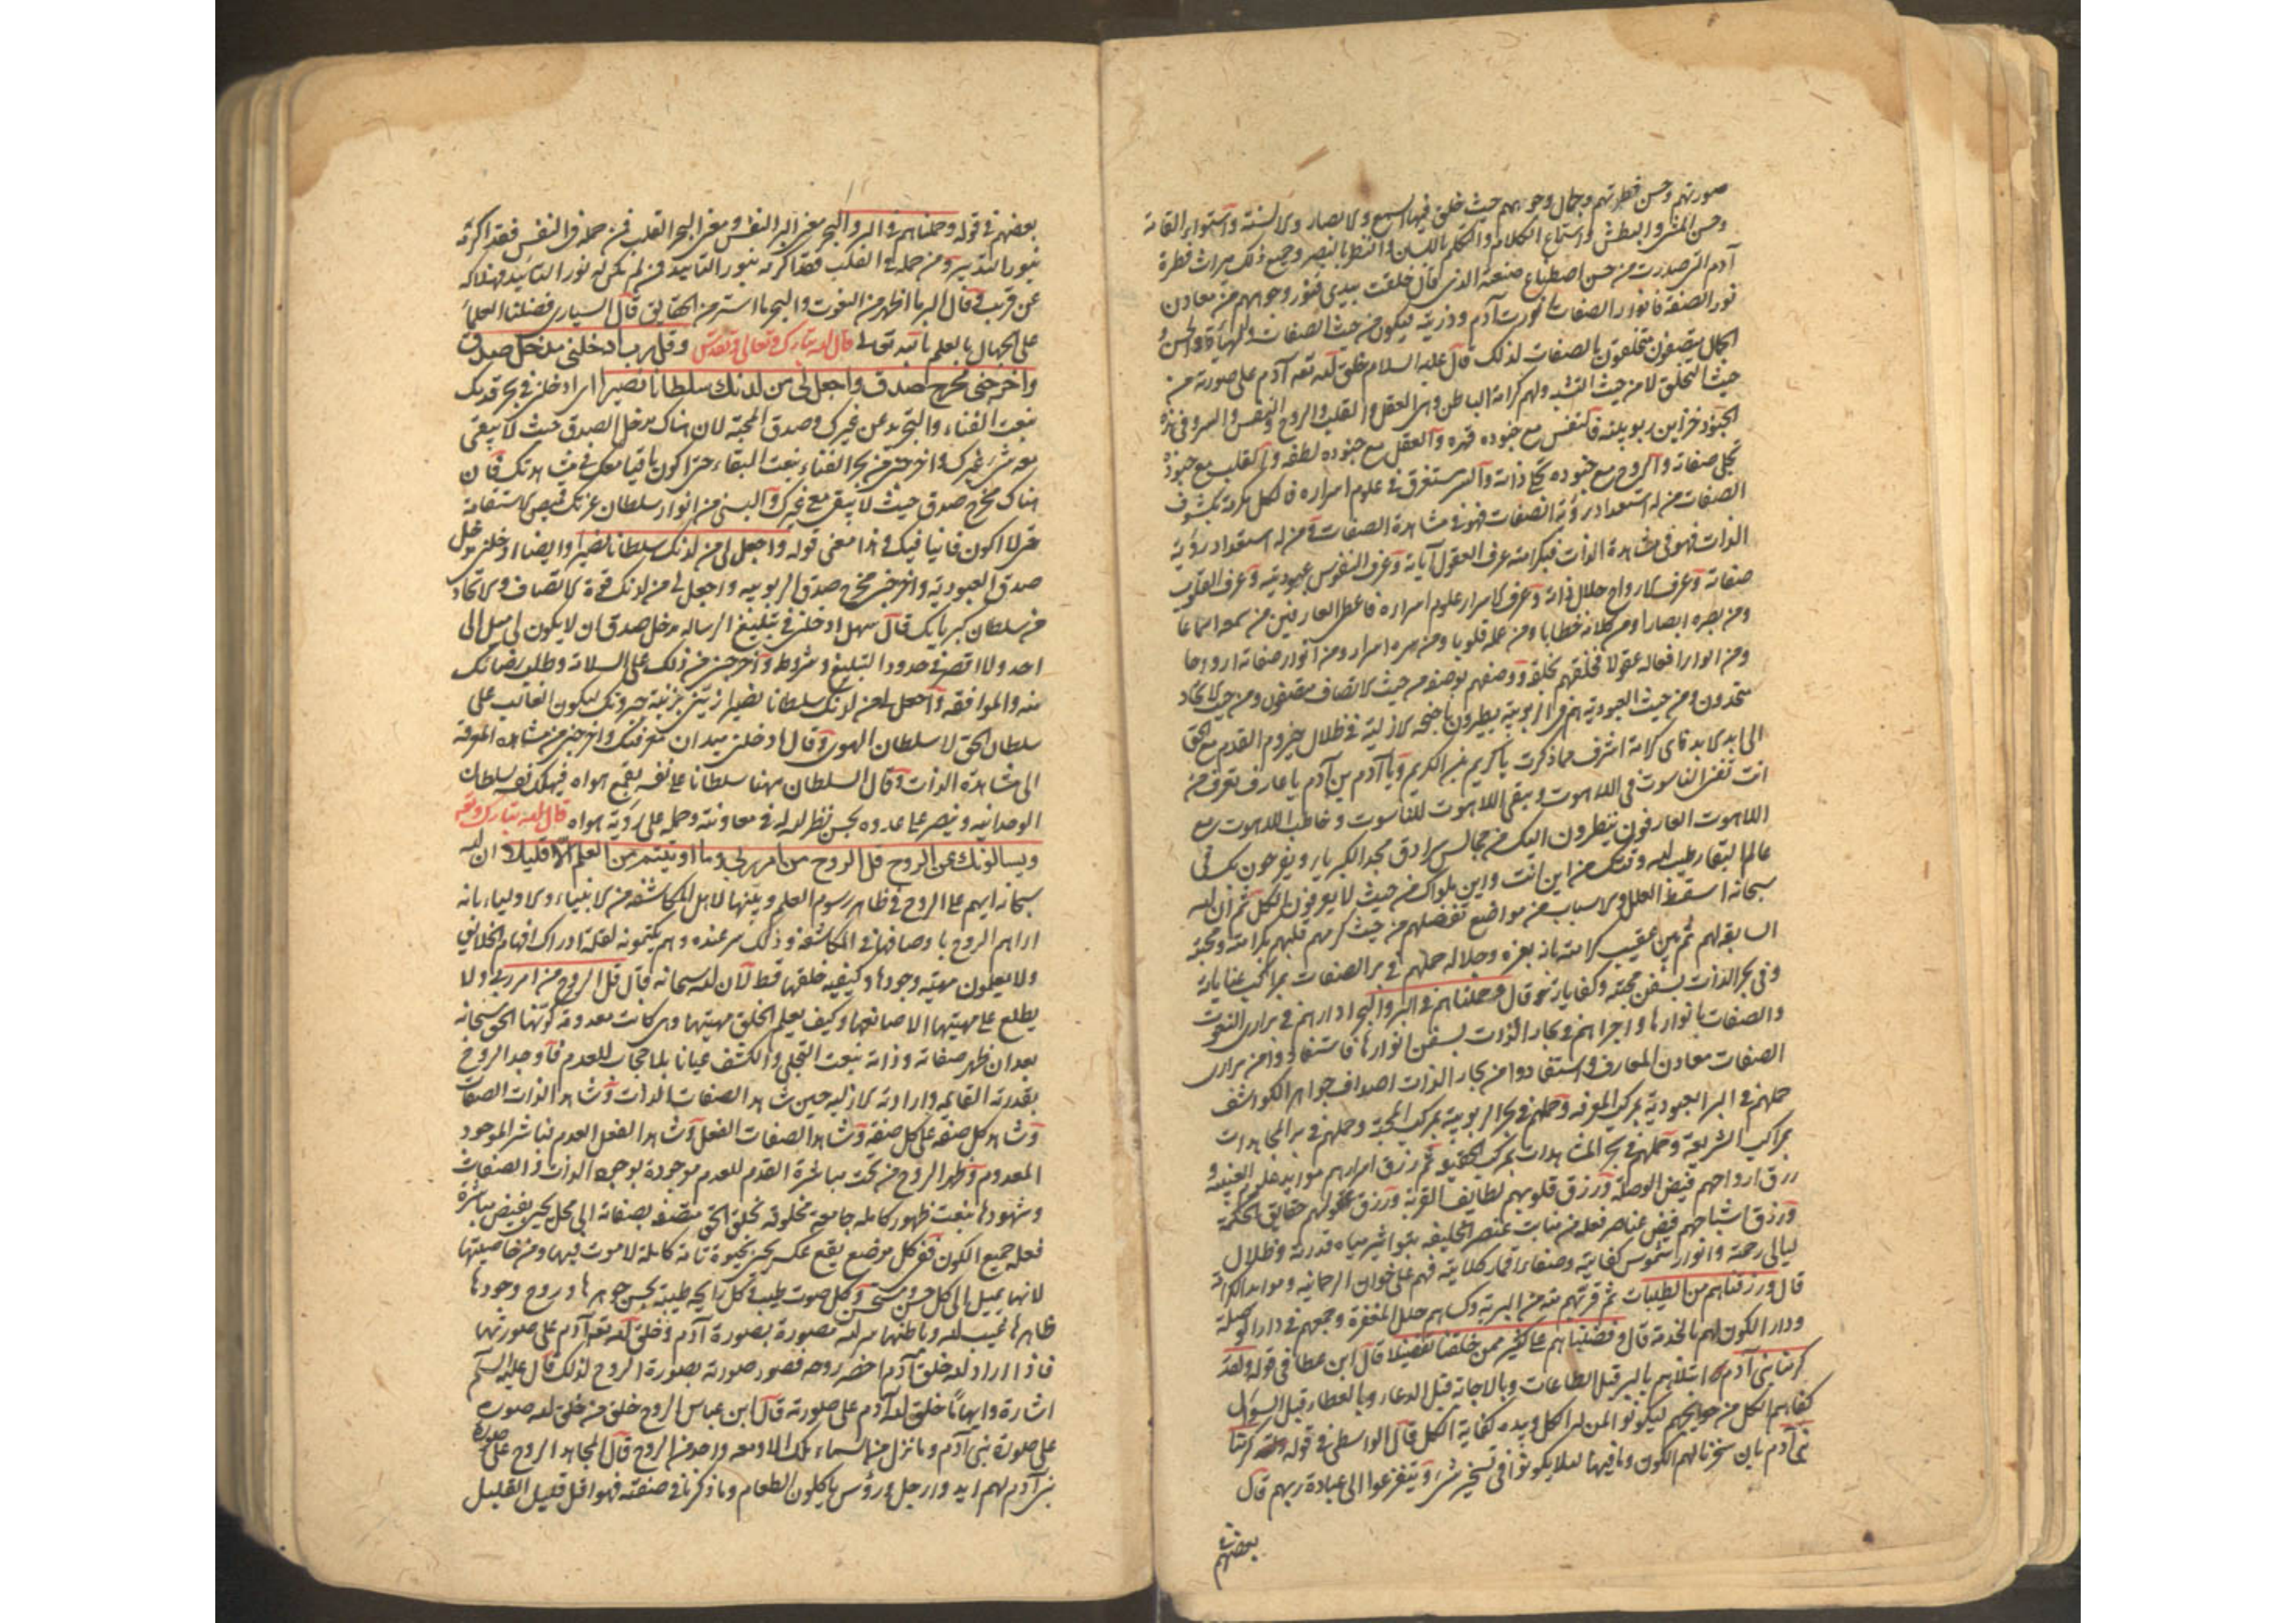 صورتهم وحسن فطرتهم وجمال وجوههم حيث خلق فيها السمع والابصار والالسنة واستواء القامة
وحسن المشى والبطش واستماع الكلام والتكلم باللسان والنظر بالبصر وجميع ذلك ميراث فطرة
آدم التى صدرت من حسن اصطناع صنعة الذى قال خلقت بيدى فنور وجوههم من معادن
نور الصفة فانوار الصفات نورت آدم وذريته ليكون من حيث الصفات والهيأة والحسن و
الجمال متصفون متخلقون بالصفات لذلك قال عليه السلام خلق الله تعه آدم على صورته من
حيث التخلق لا من حيث التشبه ولهم كرامة الباطن وهى العقل والقلب والروح والنفس والسر وفى هذه
الجنود خزاين ربوبيته فالنفس مع جنوده قهره والعقل مع جنوده لطفه والقلب مع جنوده
تجلى صفاته والروح مع جنوده تجلى ذاته والسر مستغرق فى علوم اسراره فالكل مكرمة بكشوف
الصفات من له استعداد رؤية الصفات فهو فى مشاهدة الصفات ومن له استعداد رؤية
الذات فهو فى مشاهدة الذات فبكرامته عرف العقول آياته وعرف النفوس عبوديته وعرف القلوب
صفاته وعرف الارواح جلال ذاته وعرف الاسرار علوم اسراره فاعطى العارفين من سمعه اسماعا
ومن بصره ابصارا ومن كلامه خطابا ومن علمه قلوبا ومن سره اسرارا ومن انوار صفاته ارواحا
ومن انوار افعاله عقولا فخلقهم بخلقه ووصفهم بوصفه من حيث الاتصاف متصفون ومن حيث الاتحاد
متحدون ومن حيث العبودية هم فى الربوبية يطيرون باجنحه الازلية فى ظلال القدم مع الحق
الى ابد الابد فاى كرامة اشرف مما ذكرت يا كريم بن الكريم ويا آدم بن آدم يا عارف تعرف من
انت تفنى الناسوت فى اللاهوت ويبقى اللاهوت للناسوت وخاطب اللاهوت مع
اللاهوت العارفون ينظرون اليك من مجالس سرادق مجد الكبرياء ويفرحون بك فى
عالم البقاء طيب الله وقتك من اين انت واين هلواك من حيث لا يعرفون الكل ثم ان الله
سبحانه اسقط العلل والاسباب من مواضع تفضلهم من حيث كرمهم قبلهم بكرامته ومحبته
السابقه لهم ثم بين عقيب كرامته بانه بعزه وجلاله حملهم فى بر الصفات بمراكب عناياته
وفى بحر الذات بسفن محبته وكفاياته وقال وحملناهم فى البر والبحر ادارهم فى برارى النعوت
والصفات بانوارها واجراهم فى بحار الذات بسفن انوارها فاستفادوا من برارى
الصفات معادن المعارف واستفادوا من بحار الذات اصداف جواهر الكواشف
حملهم فى البر العبودية بمركب المعرفة وحملهم فى بحر الربوبية بمركب المحبة وحملهم فى بر المجاهدات
بمراكب الشريعة وحملهم فى بحر المشاهدات بمركب الحقيقه ثم رزق اسرارهم موايد علوم الغيبيه و
رزق ارواحهم فيض الوصلة ورزق قلوبهم لطايف القربة ورزق عقولهم حقايق الحكمة
ورزق اشباحهم فيض عناصر فعله من منابت عنصر الخليقه بتواثير مياه قدرته وظلال
ليالى رحمة وانوار شموس كفايته وصفاء اقمار كلايته فهم على خوان الرحمانيه وموايد الكرامة
قال ورزقناهم من الطيبات ثم فرقهم منه من البرية وكساهم حلل المغفرة وجمعهم فى دار الوصلة
ودار الكون لهم بالخدمة قال وفضلناهم على كثير ممن خلقنا تفضيلا قال ابن عطا فى قوله ولقد
كرمنا بنى آدم ابتلاهم بالبر قبل الطاعات وبالاجابة قبل الدعاء وبالعطاء قبل السؤال
كفاهم الكل من حوايجهم ليكونوا لمن له الكل وبيده كفاية الكل قال الواسطى فى قوله كرمنا
بنى آدم بان سخرنا لهم الكون وما فيها لئلا يكونوا فى تسخير شىء ويتفرغوا الى عبادة ربهم قال
بعضهم فى
بعضهم فى قوله وحملناهم فى البر والبحر معنى البر النفس ومعنى البحر القلب فمن حمله فى النفس فقد اكرمه
بنور التدبير ومن حمله فى القلب فقد اكرمه بنور التاييد فمن لم يكن له نور التاييد فهلاكه
عن قريب وقال البر ما اظهر من النعوت والبحر ما استتر من الحقايق قال السيارى فضلنا العلماء
على الجهال بالعلم بالله تعالى قال الله تبارك وتعالى وتقدس وقل رب ادخلنى مدخل صدق
واخرجنى مخرج صدق واجعل لى من لدنك سلطانا نصيرا اراد ادخلنى فى بحر قدمك
بنعت الفناء والتجريد عن غيرك وصدق المحبة لان هناك مدخل الصدق حيث لا يبقى
معه شىء غيرك واخرجنى من بحر الفناء بنعت البقاء حتى اكون باقيا معك فى مشاهدتك فان
هناك مخرج صدق حيث لا يبقى مع غيرك والبسنى من انوار سلطان عزتك قميص الاستقامة
حتى لا اكون فانيا فيك وهذا معنى قوله واجعل لى من لدنك سلطانا نصيرا وايضا ادخلنى مدخل
صدق العبودية واخرجنى مخرج صدق الربوبيه واجعل لى من لدنك قوة الاتصاف والاتحاد
من سلطان كبريايك قال سهل ادخلنى فى تبليغ الرساله مدخل صدق ان لا يكون لى ميل الى
احد ولا اقصر فى حدود التبليغ وشروطه واخرجنى من ذلك على السلامة وطلب رضاك
منه والموافقه واجعل لى من لدنك سلطانا نصيرا زينى بزينة جبروتك ليكون الغالب على
سلطان الحق لا سلطان الهوى وقال ادخلنى ميدان معرفتك واخرجنى من مشاهدة المعرفة
الى مشاهدة الذات وقال السلطان مهنا سلطانا على نفسه بقمع هواه فيهلك نفسه بسلطان
الوحدانيه وينصر على عدوه بحسن نظر الله له فى معاونته وحمله على رؤية هواه قال الله تبارك وتعه
ويسالونك عن الروح قل الروح من امر ربى وما اوتيتم من العلم الا قليلا ان الله
سبحانه ابهم على الروح فى ظاهر رسوم العلم وبينها لاهل المكاشفه من الانبياء والاولياء بانه
اراهم الروح باوصافها فى المكاشفة وذلك سر عنده وهم يكتمونه لقلة ادراك افهام الخلائق
ولا يعلمون مهيته وجودها وكيفيه خلقها قط لان الله سبحانه قال قل الروح من امر ربى ولا
يطلع على مهيتها الا صانعها وكيف يعلم الخلق مهيتها وهى كانت معدومة كونها الحق سبحانه
بعد ان ظهر صفاته وذاته بنعت التجلى والكشف عيانا بلا حجاب للعدم فاوجد الروح
بقدرته القايمه وارادته الازليه حين شاهد الصفات الذات وشاهد الذات الصفات
وشاهد كل صفه على كل صفه وشاهد الصفات الفعل وشاهد الفعل العدم فباشر الموجود
المعدوم وظهر الروح من تحت مباشرة القدم للعدم موجودة بوجود الذات والصفات
وشهودها بنعت ظهور كامله جامعة مخلوقه بخلق الحق متصفه بصفاته الى محل يفيض مباشرة
فعله جميع الكون ففى كل موضع يقع عكس يحيى بحيوة تامة كاملة لا موت فيها ومن خاصيتها
لانها يميل الى كل حسن ومستحسن وكل صوت طيب وكل رايحه طيبة لحسن جوهرها وروح وجودها
ظاهرها غيب الله وباطنها سر الله مصورة بصورة آدم وخلق الله تعه آدم على صورتها
فاذا اراد الله خلق آدم احضر روحه فصور صورته بصورة الروح لذلك قال عليه السلم
اشارة وابهاما خلق الله آدم على صورته قال ابن عباس الروح خلق من خلق الله صورهم
على صورة بنى آدم وما نزل من السماء ملك الا ومعه واحد من الروح قال المجاهد الروح على صورة
بنى آدم لهم ايد وارجل ورؤس ياكلون الطعام وما ذكرنا فى صنفته فهو اقل قليل القليل